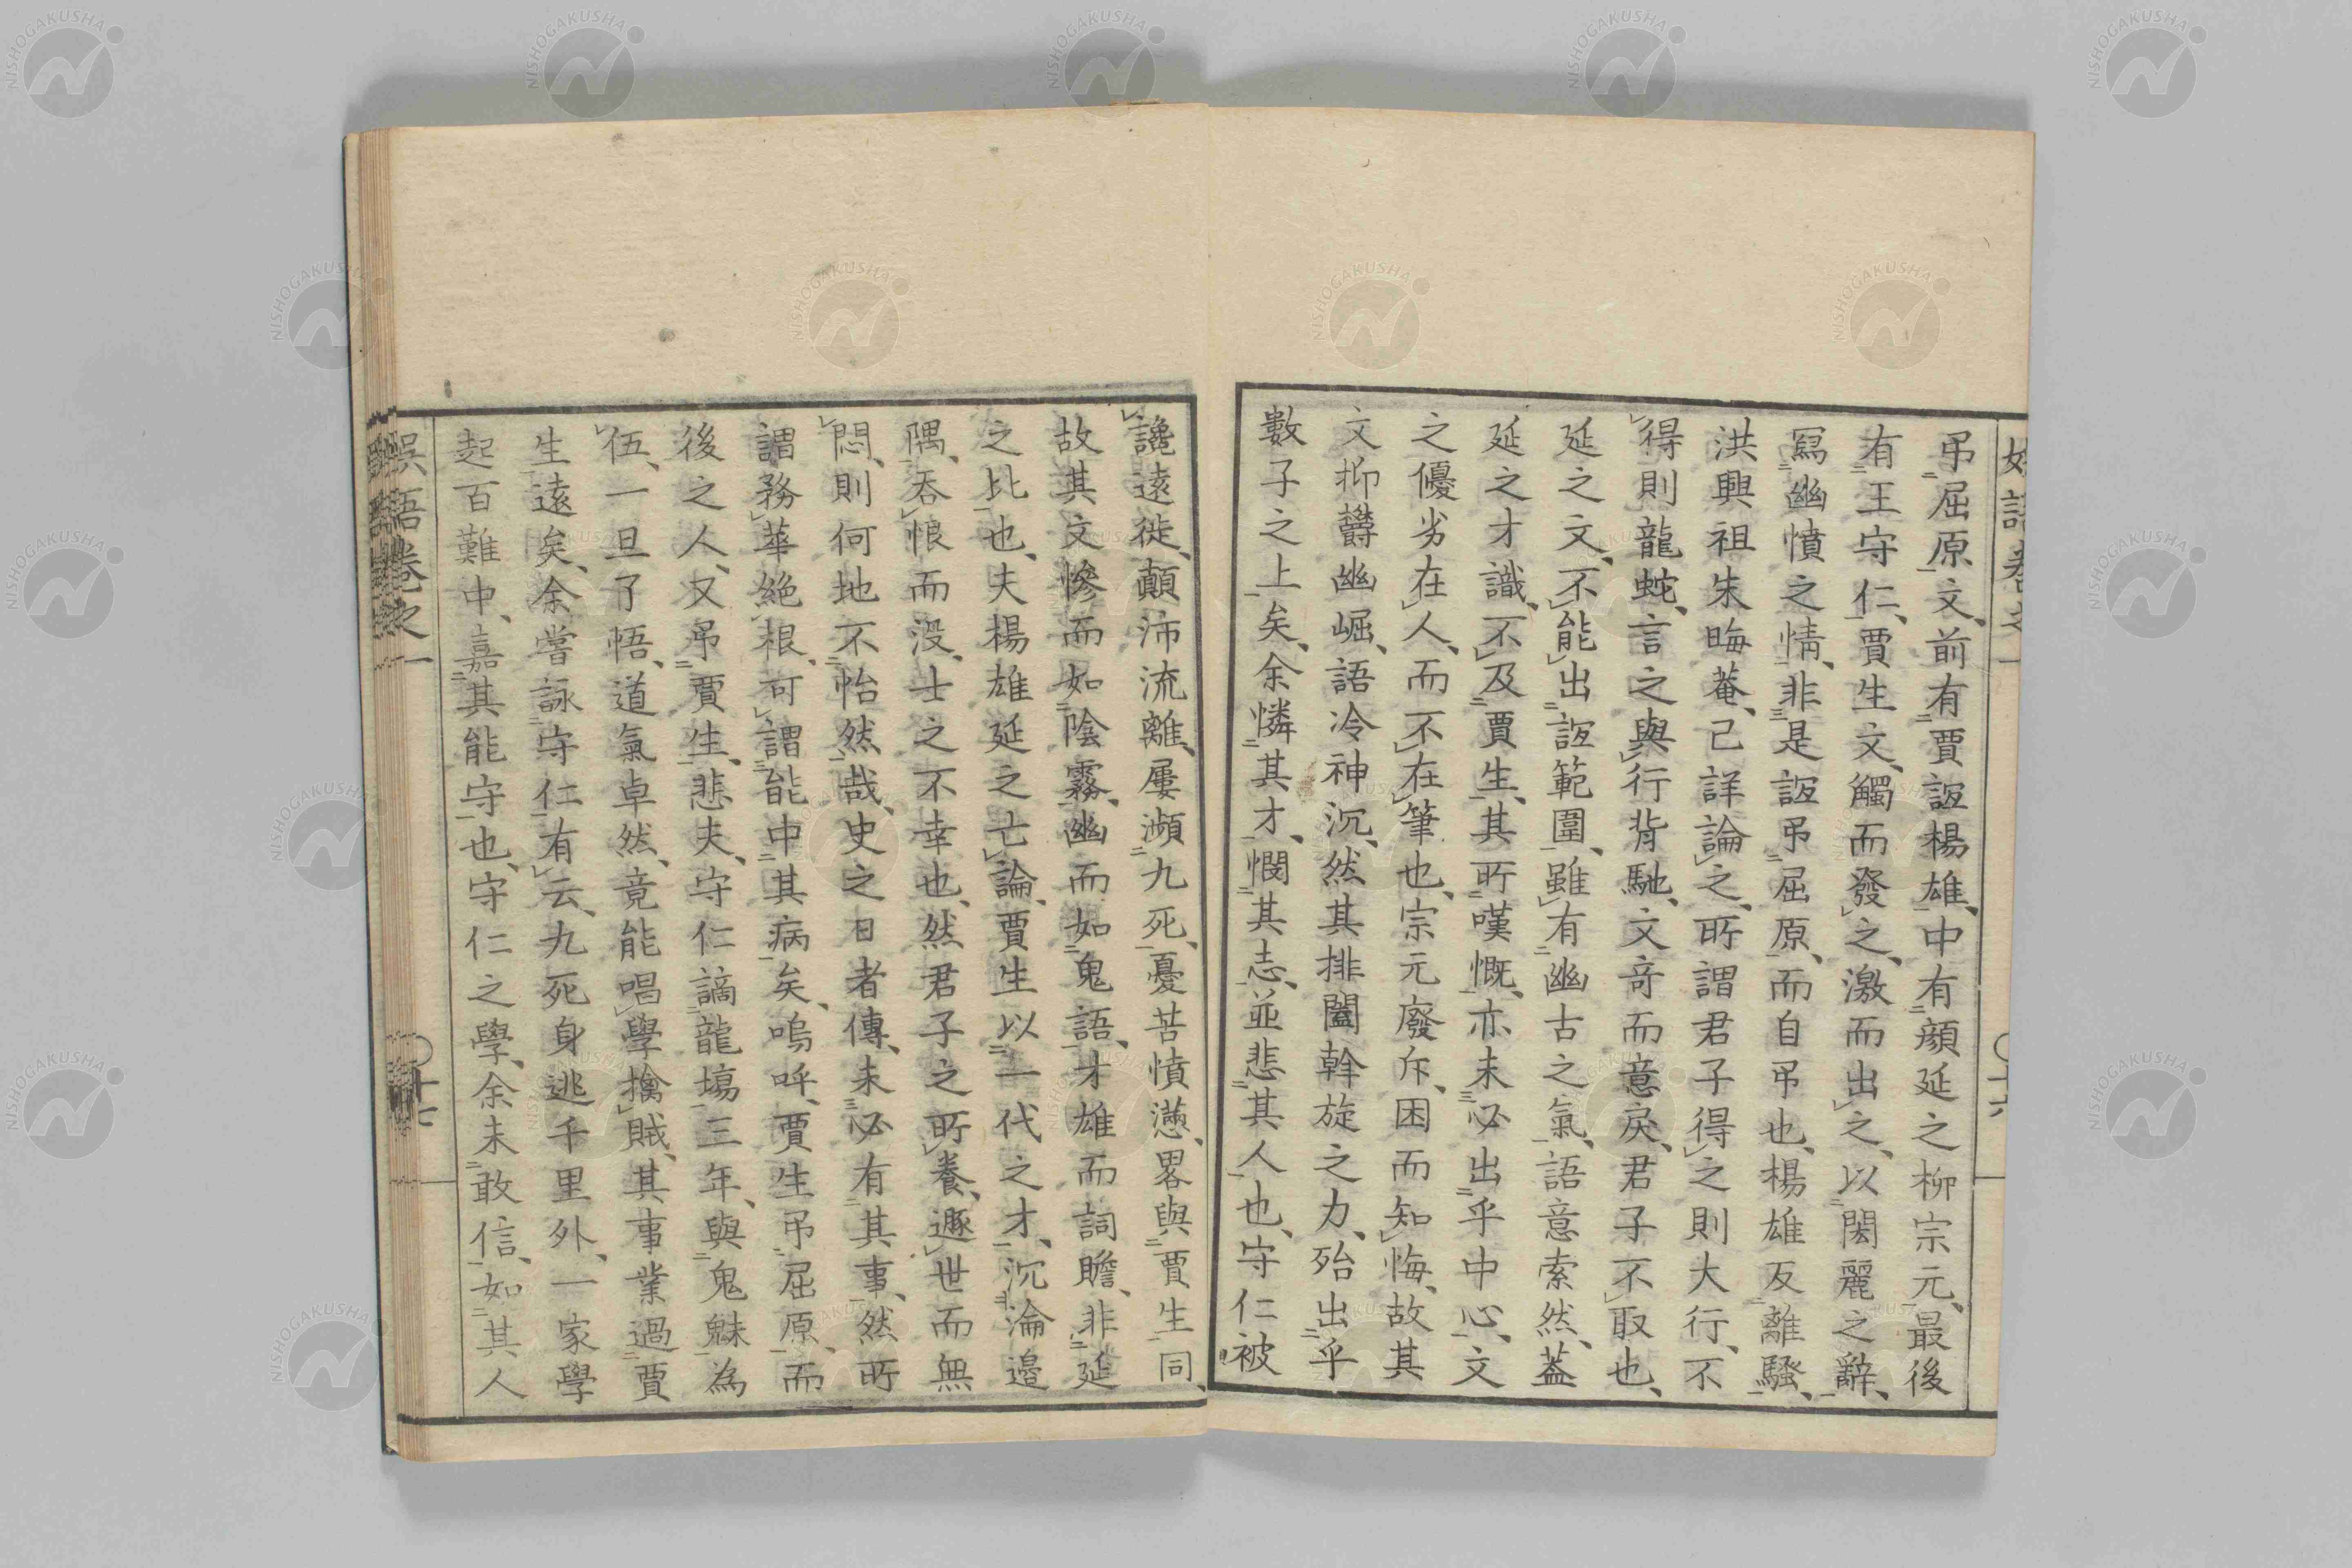 弔屈原文、前有賈誼楊雄、中有顔延之柳宗元、最後
有王守仁、賈生文、觸而發之、激而出之、以閎麗之辭、
冩幽憤之情、非是誼弔屈原、而自弔也、楊雄反離騷、
洪興祖朱晦菴、已詳論之、所謂君子得之則大行、不
得則龍蛇、言之與行背馳、文奇而意戾、君子不取也、
延之文、不能出誼範圍、雖有幽古之氣、語意索然、葢
延之才識、不及賈生、其所嘆慨、亦未必出乎中心、文
之優劣在人、而不在筆也、宗元廢斥、困而知悔、故其
文抑欝幽崛、語冷神沉、然其排闔斡旋之力、殆出乎
數子之上矣、余憐其才、憫其志、並悲其人也、守仁被
讒遠徙、顛沛流離、屢瀕九死、憂苦憤懣、畧與賈生同、
故其文慘而如陰霧、幽而如鬼語、才雄而詞贍、非延
之比也、夫楊雄延之亡論、賈生以一代之才、沉淪邉
隅、吞恨而没、士之不幸也、然君子之所養、遯世而無
悶、則何地不怡然哉、史之日者傳、未必有其事、然所
謂務華絶根、可謂能中其病矣、嗚呼、賈生弔屈原、而
後之人、又弔賈生、悲夫、守仁謫龍場三年、與鬼魅為
伍、一旦了悟、道氣卓然、竟能唱學擒賊、其事業過賈
生遠矣、余嘗詠守仁有云、九死身逃千里外、一家學
起百難中、嘉其能守也、守仁之學、余未敢信、如其人
娯語卷之一
〇十七
〇十六